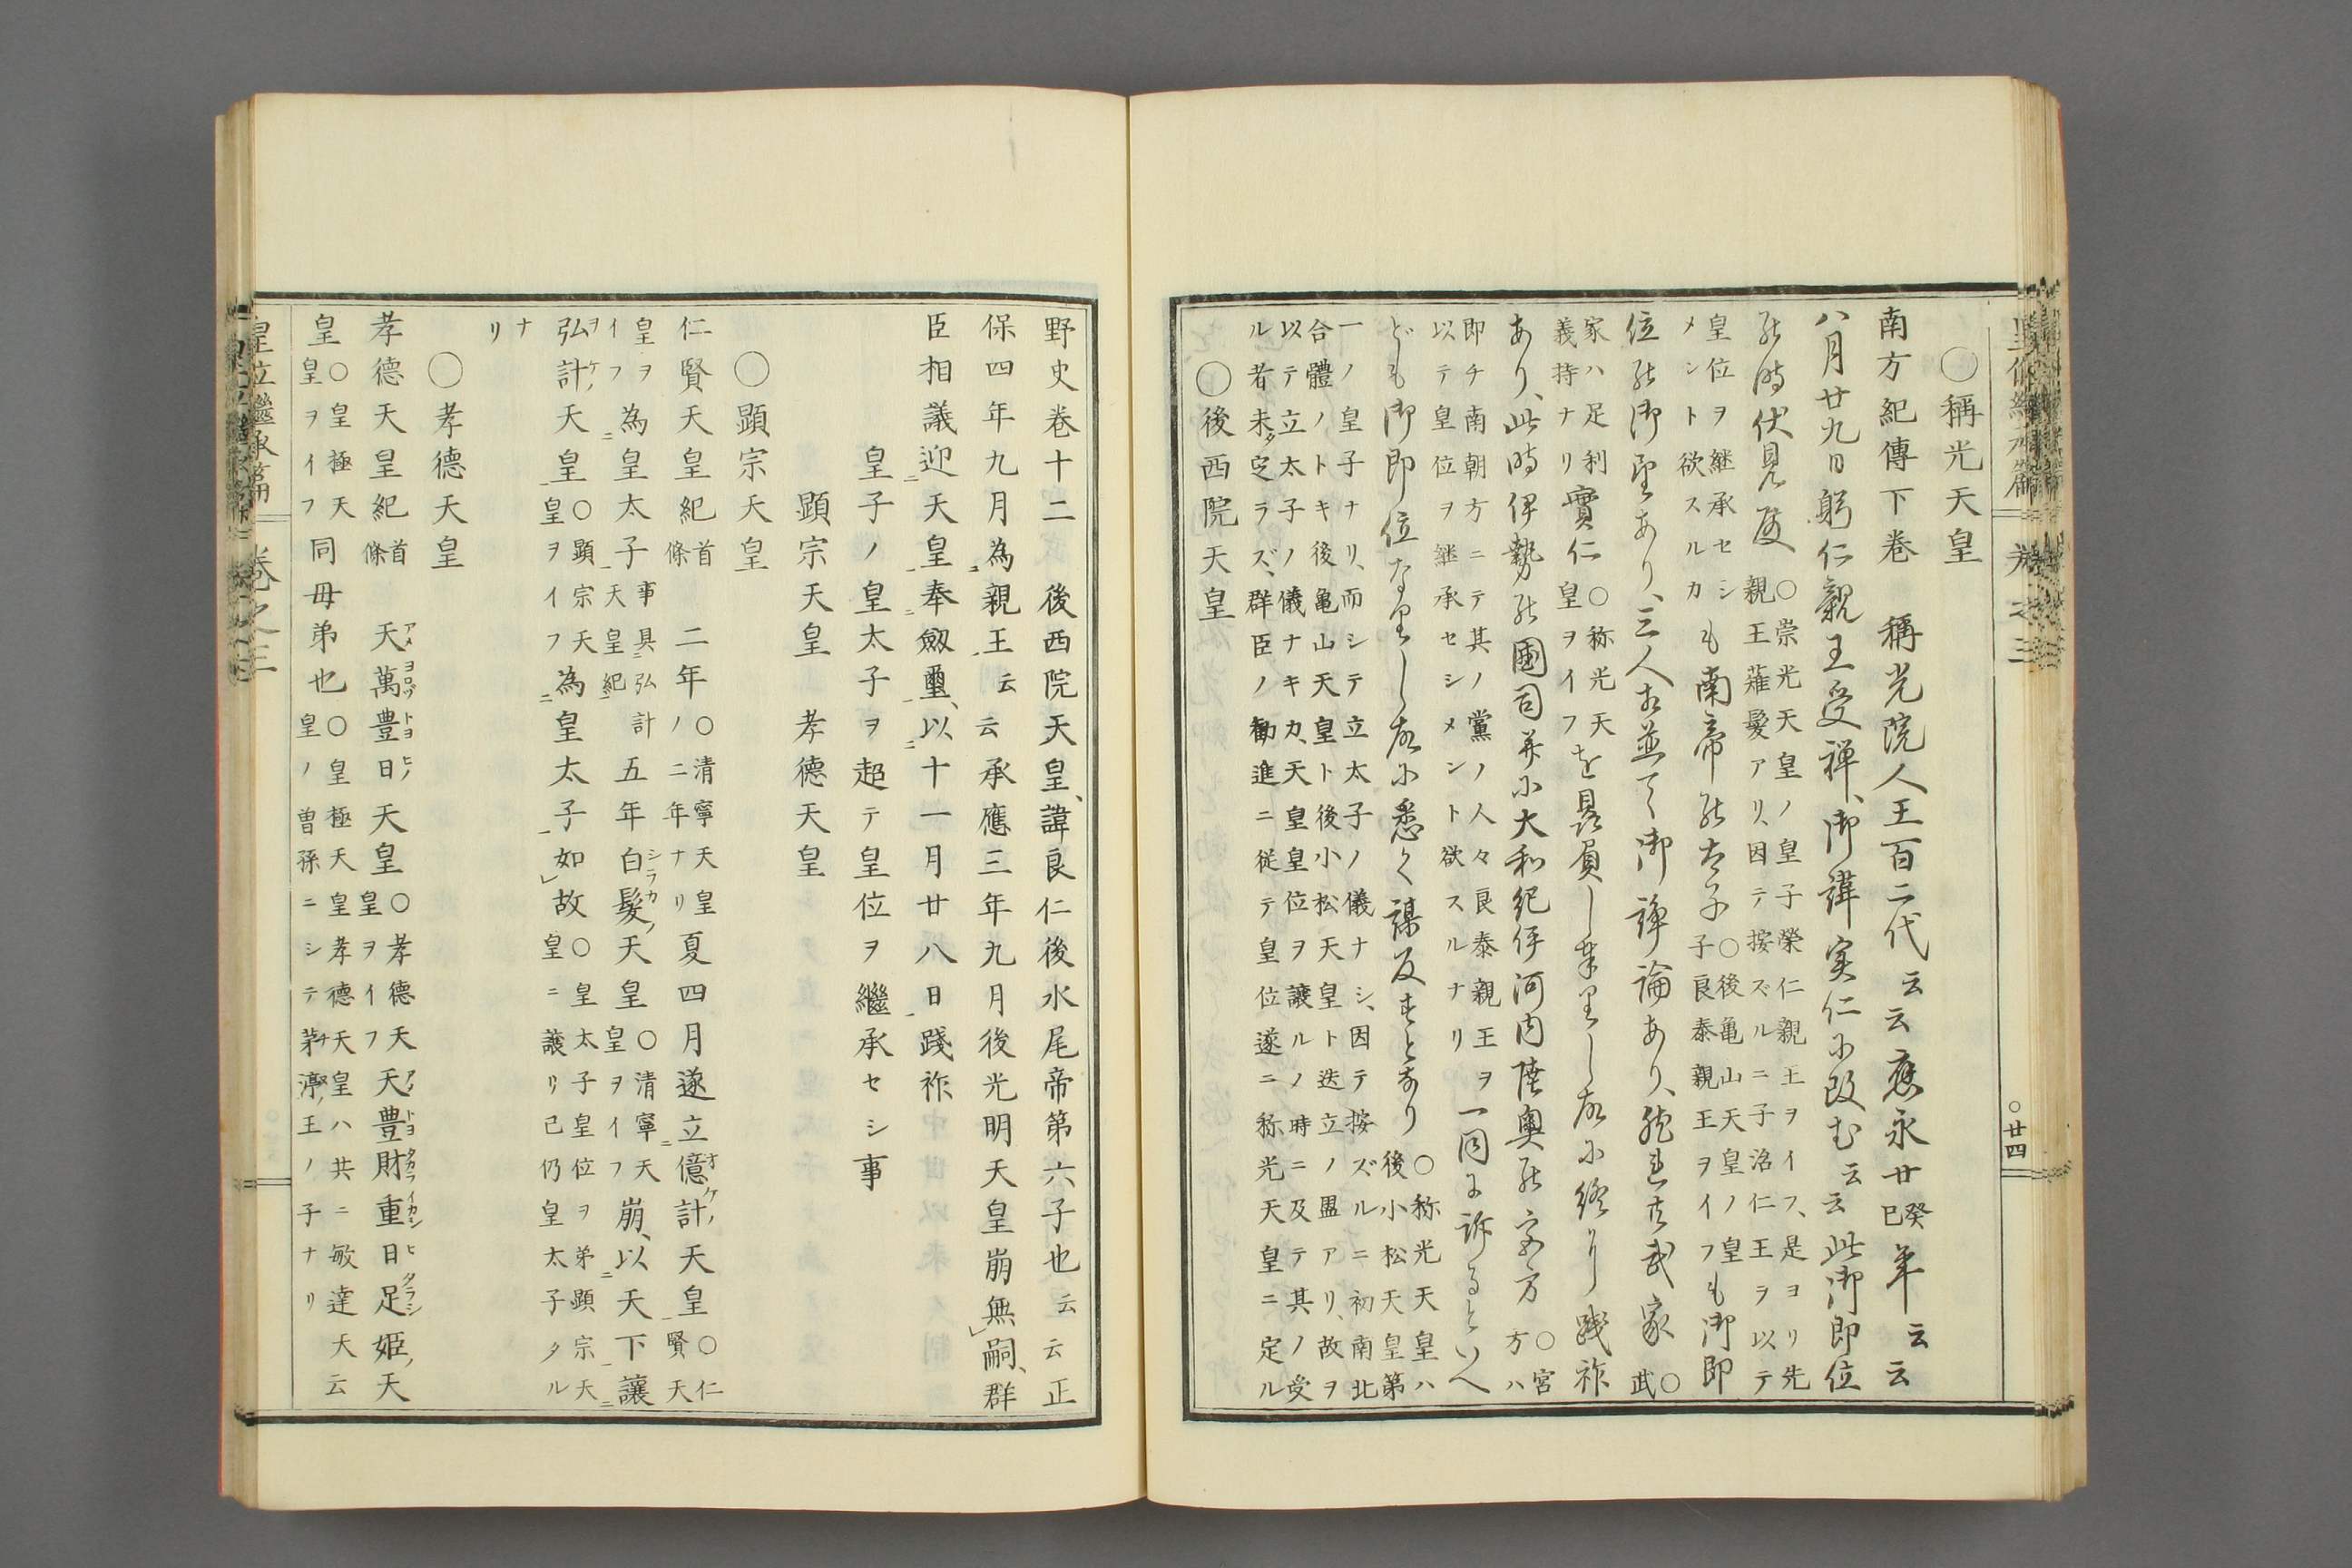 〇稱光天皇
南方紀傳下卷　稱光院人王百二代云云應永廿癸巳年云云
八月廿九日躬仁親王受禅、御諱実仁に改む云云此御即位
の時伏見殿〇崇光天皇ノ皇子榮仁親王ヲイフ、是ヨリ先親王薙髮アリ、因テ按ズルニ子洺仁王ヲ以テ
皇位ヲ継承セシメント欲スルカも南帝の太子〇後亀山天皇ノ皇子良泰親王ヲイフも御即
位の御望あり、三人相並て御諍論あり、然れ共武家〇武
家ハ足利義持ナリ實仁〇称光天皇ヲイフを贔屓し奉りし故に終り践祚
あり、此時伊勢の國司并に大和紀伊河内陸奥の宮方〇宮方ハ
即チ南朝方ニテ其ノ黨ノ人々良泰親王ヲ以テ皇位ヲ継承セシメント欲スルナリ一同に訴るといへ
ども御即位なりし故に悉く謀反すとなり〇称光天皇ハ後小松天皇第
一ノ皇子ナリ、而シテ立太子ノ儀ナシ、因テ按ズルニ初南北合體ノトキ後亀山天皇ト後小松天皇ト迭立ノ盟アリ、故ヲ
以テ立太子ノ儀ナキカ、天皇皇位ヲ譲ルノ時ニ及テ其ノ受ル者未ダ定ラズ、群臣ノ勧進ニ従テ皇位遂ニ称光天皇ニ定ル
〇後西院天皇
皇位繼承篇　卷之三　〇廿四
野史卷十二　後西院天皇、諱良仁後水尾帝第六子也云云正
保四年九月為親王云云承應三年九月後光明天皇崩無嗣、群
臣相議迎天皇奉劔璽、以十一月廿八日踐祚
皇子ノ皇太子ヲ超テ皇位ヲ繼承セシ事
顕宗天皇　孝德天皇
〇顕宗天皇
仁賢天皇紀首條　二年〇清寧天皇ノ二年ナリ夏四月遂立億計天皇〇仁賢天
皇ヲイフ為皇太子事具弘計天皇紀五年白髮天皇〇清寧天皇ヲイフ崩、以天下讓
弘計天皇〇顕宗天皇ヲイフ為皇太子如故〇皇太子皇位ヲ弟顕宗天皇ニ譲リ已仍皇太子タル
ナリ
〇孝德天皇
孝德天皇紀首條　天萬豊日天皇〇孝德天皇ヲイフ天豊財重日足姫天
皇〇皇極天皇ヲイフ同母弟也〇皇極天皇孝德天皇ハ共ニ敏達天皇ノ曽孫ニシテ茅渟王ノ子ナリ云
皇位繼承篇　卷之三